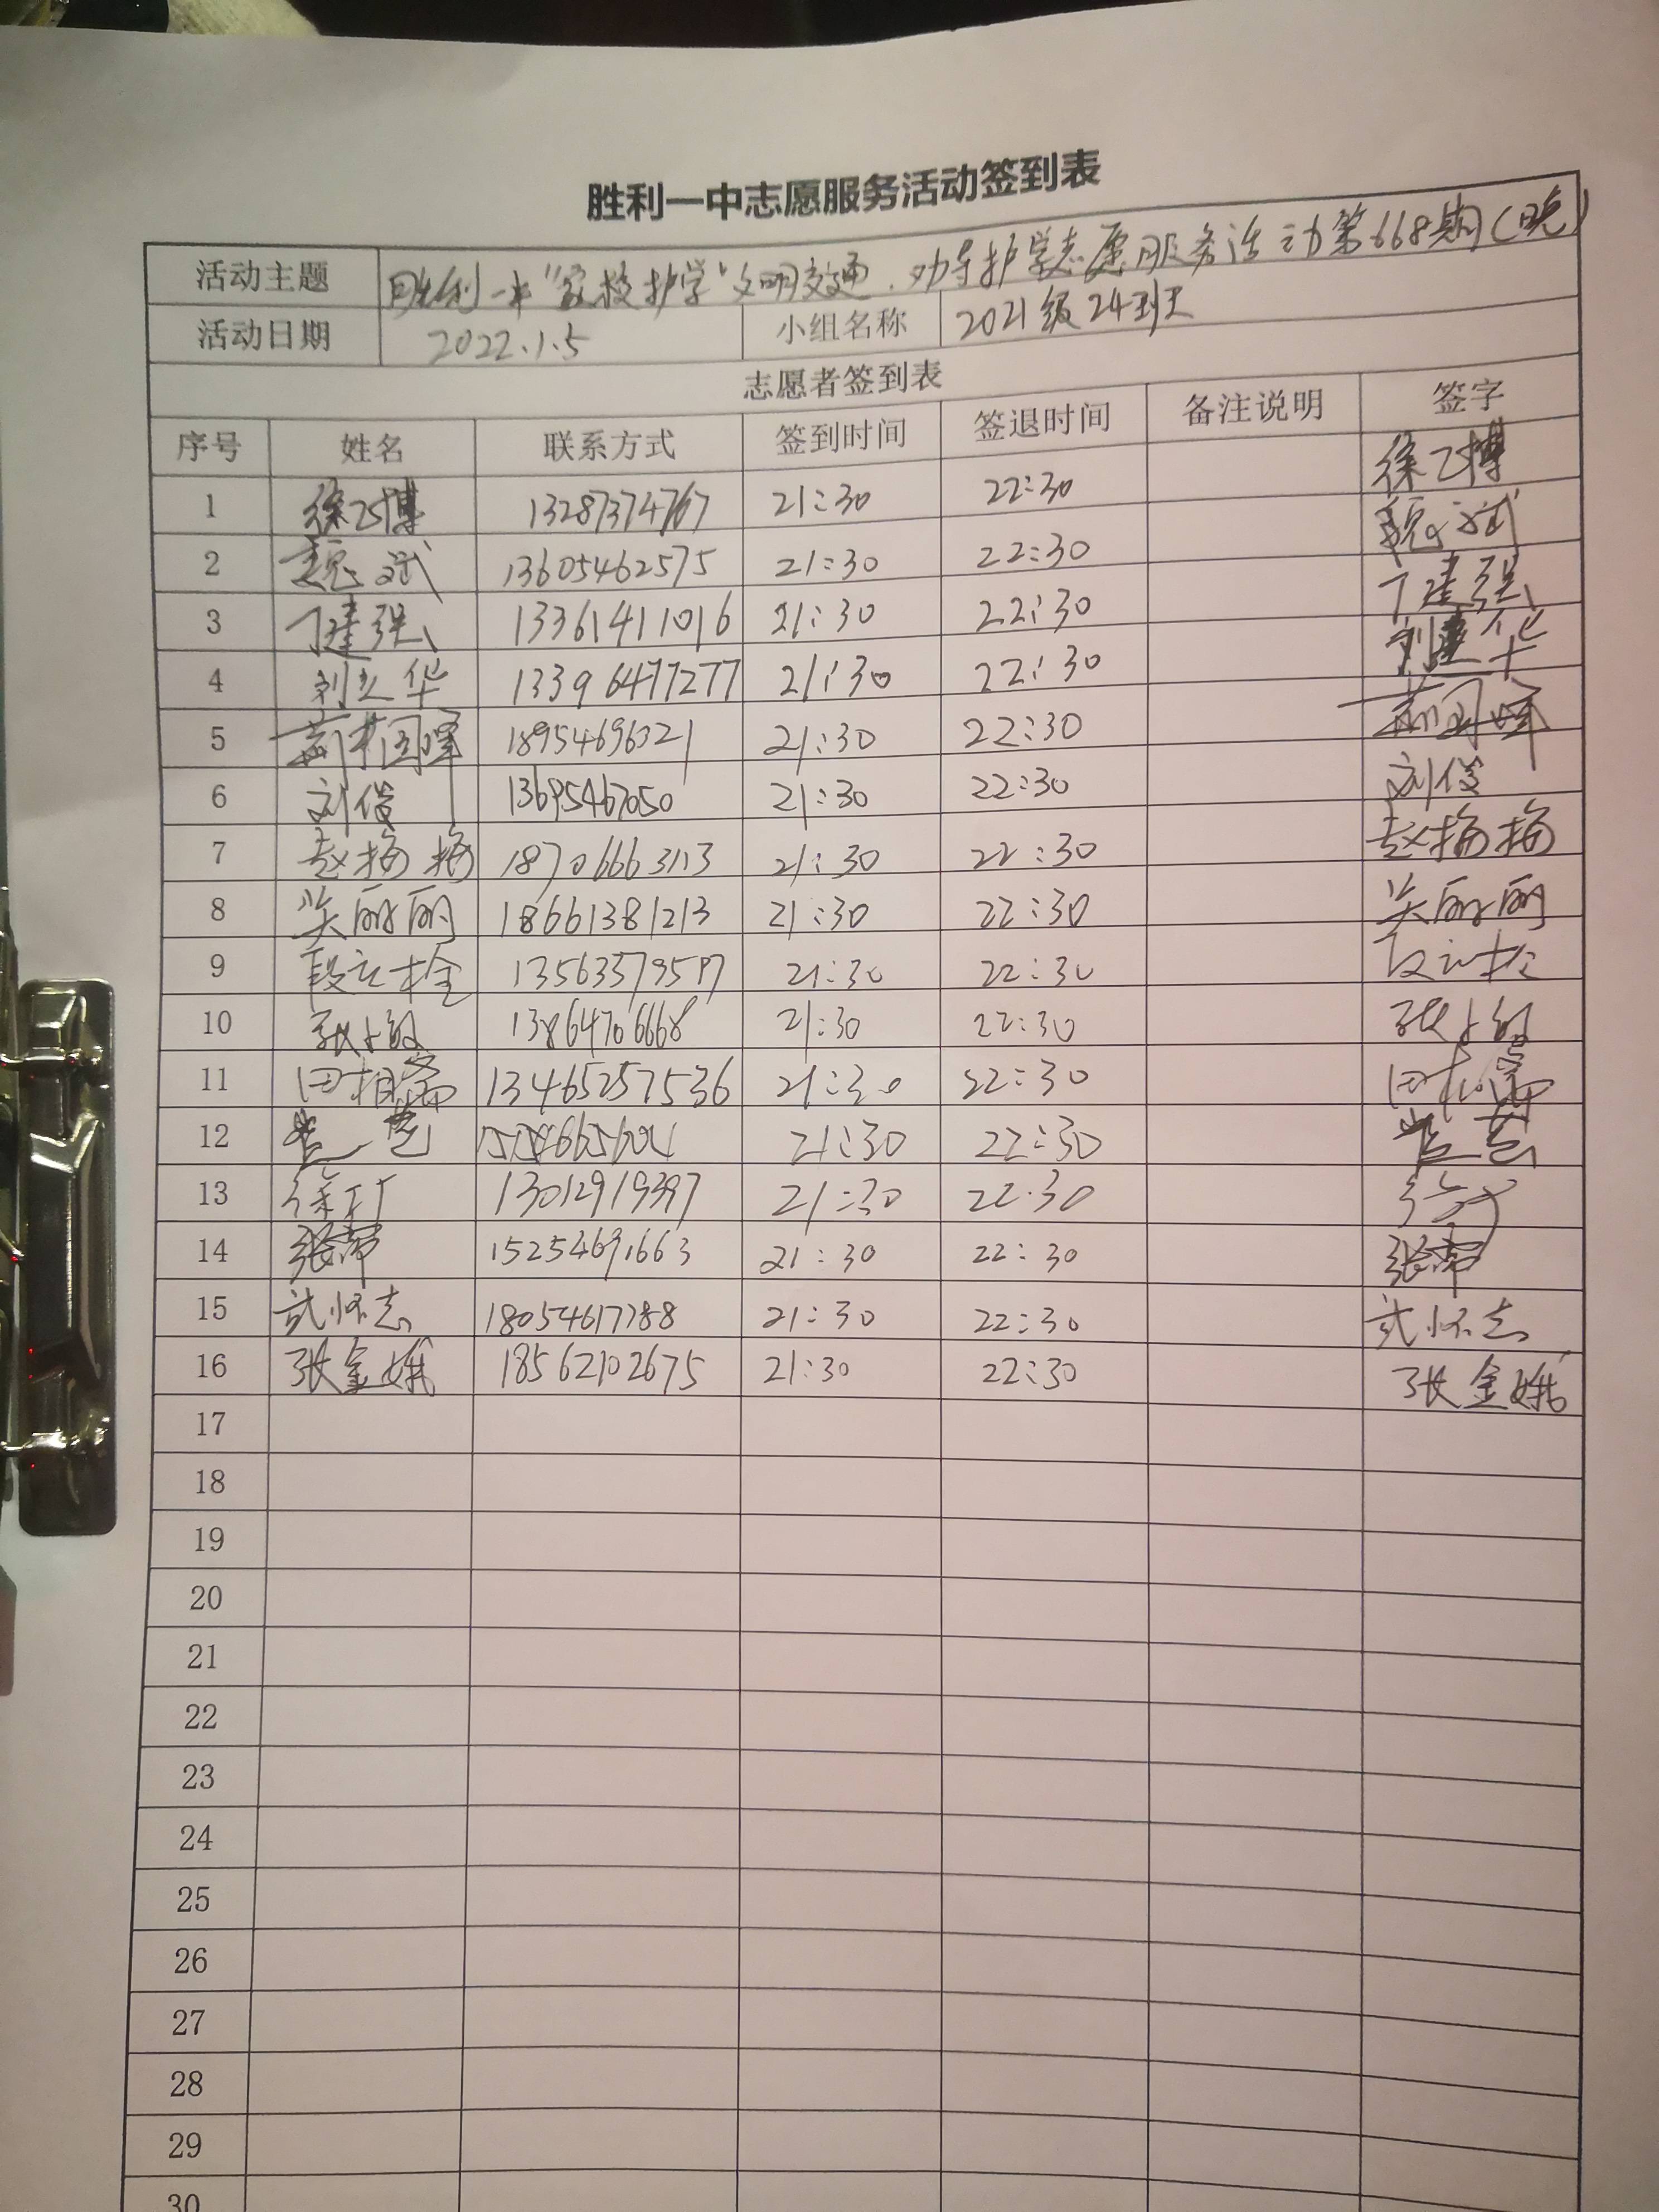 胜利一中志愿服务活动签到表
活动主题 胜利一中"家校护学"文明交通、劝导护学志愿服务活动第668期(晚)
活动日期 2022.1.5 小组名称 2021级24班
志愿者签到表
序号 姓名 联系方式 签到时间 签退时间 备注说明 签字
1 徐飞博 13287374767 21:30 22:30 徐飞博
2 魏斌 13605462575 21:30 22:30 魏斌
3 丁建强 13361411016 21:30 22:30 丁建强
4 刘建华 13396477277 21:30 22:30 刘建华
5 国峰 18954696321 21:30 22:30 国峰
6 刘俊 13695467050 21:30 22:30 刘俊
7 赵梅梅 18706663113 21:30 22:30 赵梅梅
8 关丽丽 18661381213 21:30 22:30 关丽丽
9 段立栓 21:30 22:30
10 张 13864706668 21:30 22:30 张
11 田相 13465257536 21:30 22:30 田
12 21:30 22:30
13 徐 13012919397 21:30 22:30
14 张 15254691663 21:30 22:30 张
15 武怀志 18054617788 21:30 22:30 武怀志
16 张金娥 18562102675 21:30 22:30 张金娥
17
18
19
20
21
22
23
24
25
26
27
28
29
30